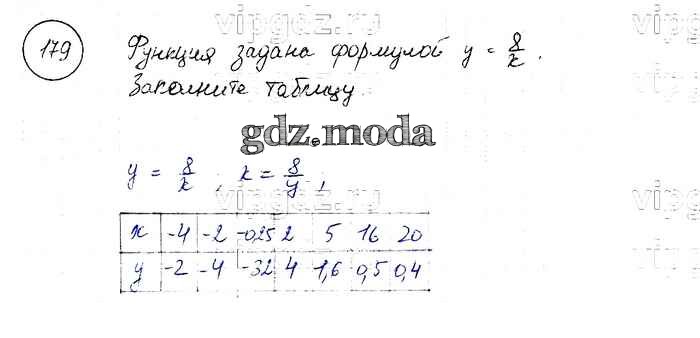 vipgdz.ru vipgdz.ru vipg
179 Функция задана формулой y = 8/x.
Заполните таблицу
vipgdz.ru vipg
gdz.moda
y = 8/x ; x = 8/y ;
vipgdz.ru vipg
x -4 -2 -0,25 2 5 16 20
y -2 -4 -32 4 1,6 0,5 0,4
vipgdz.ru vipg